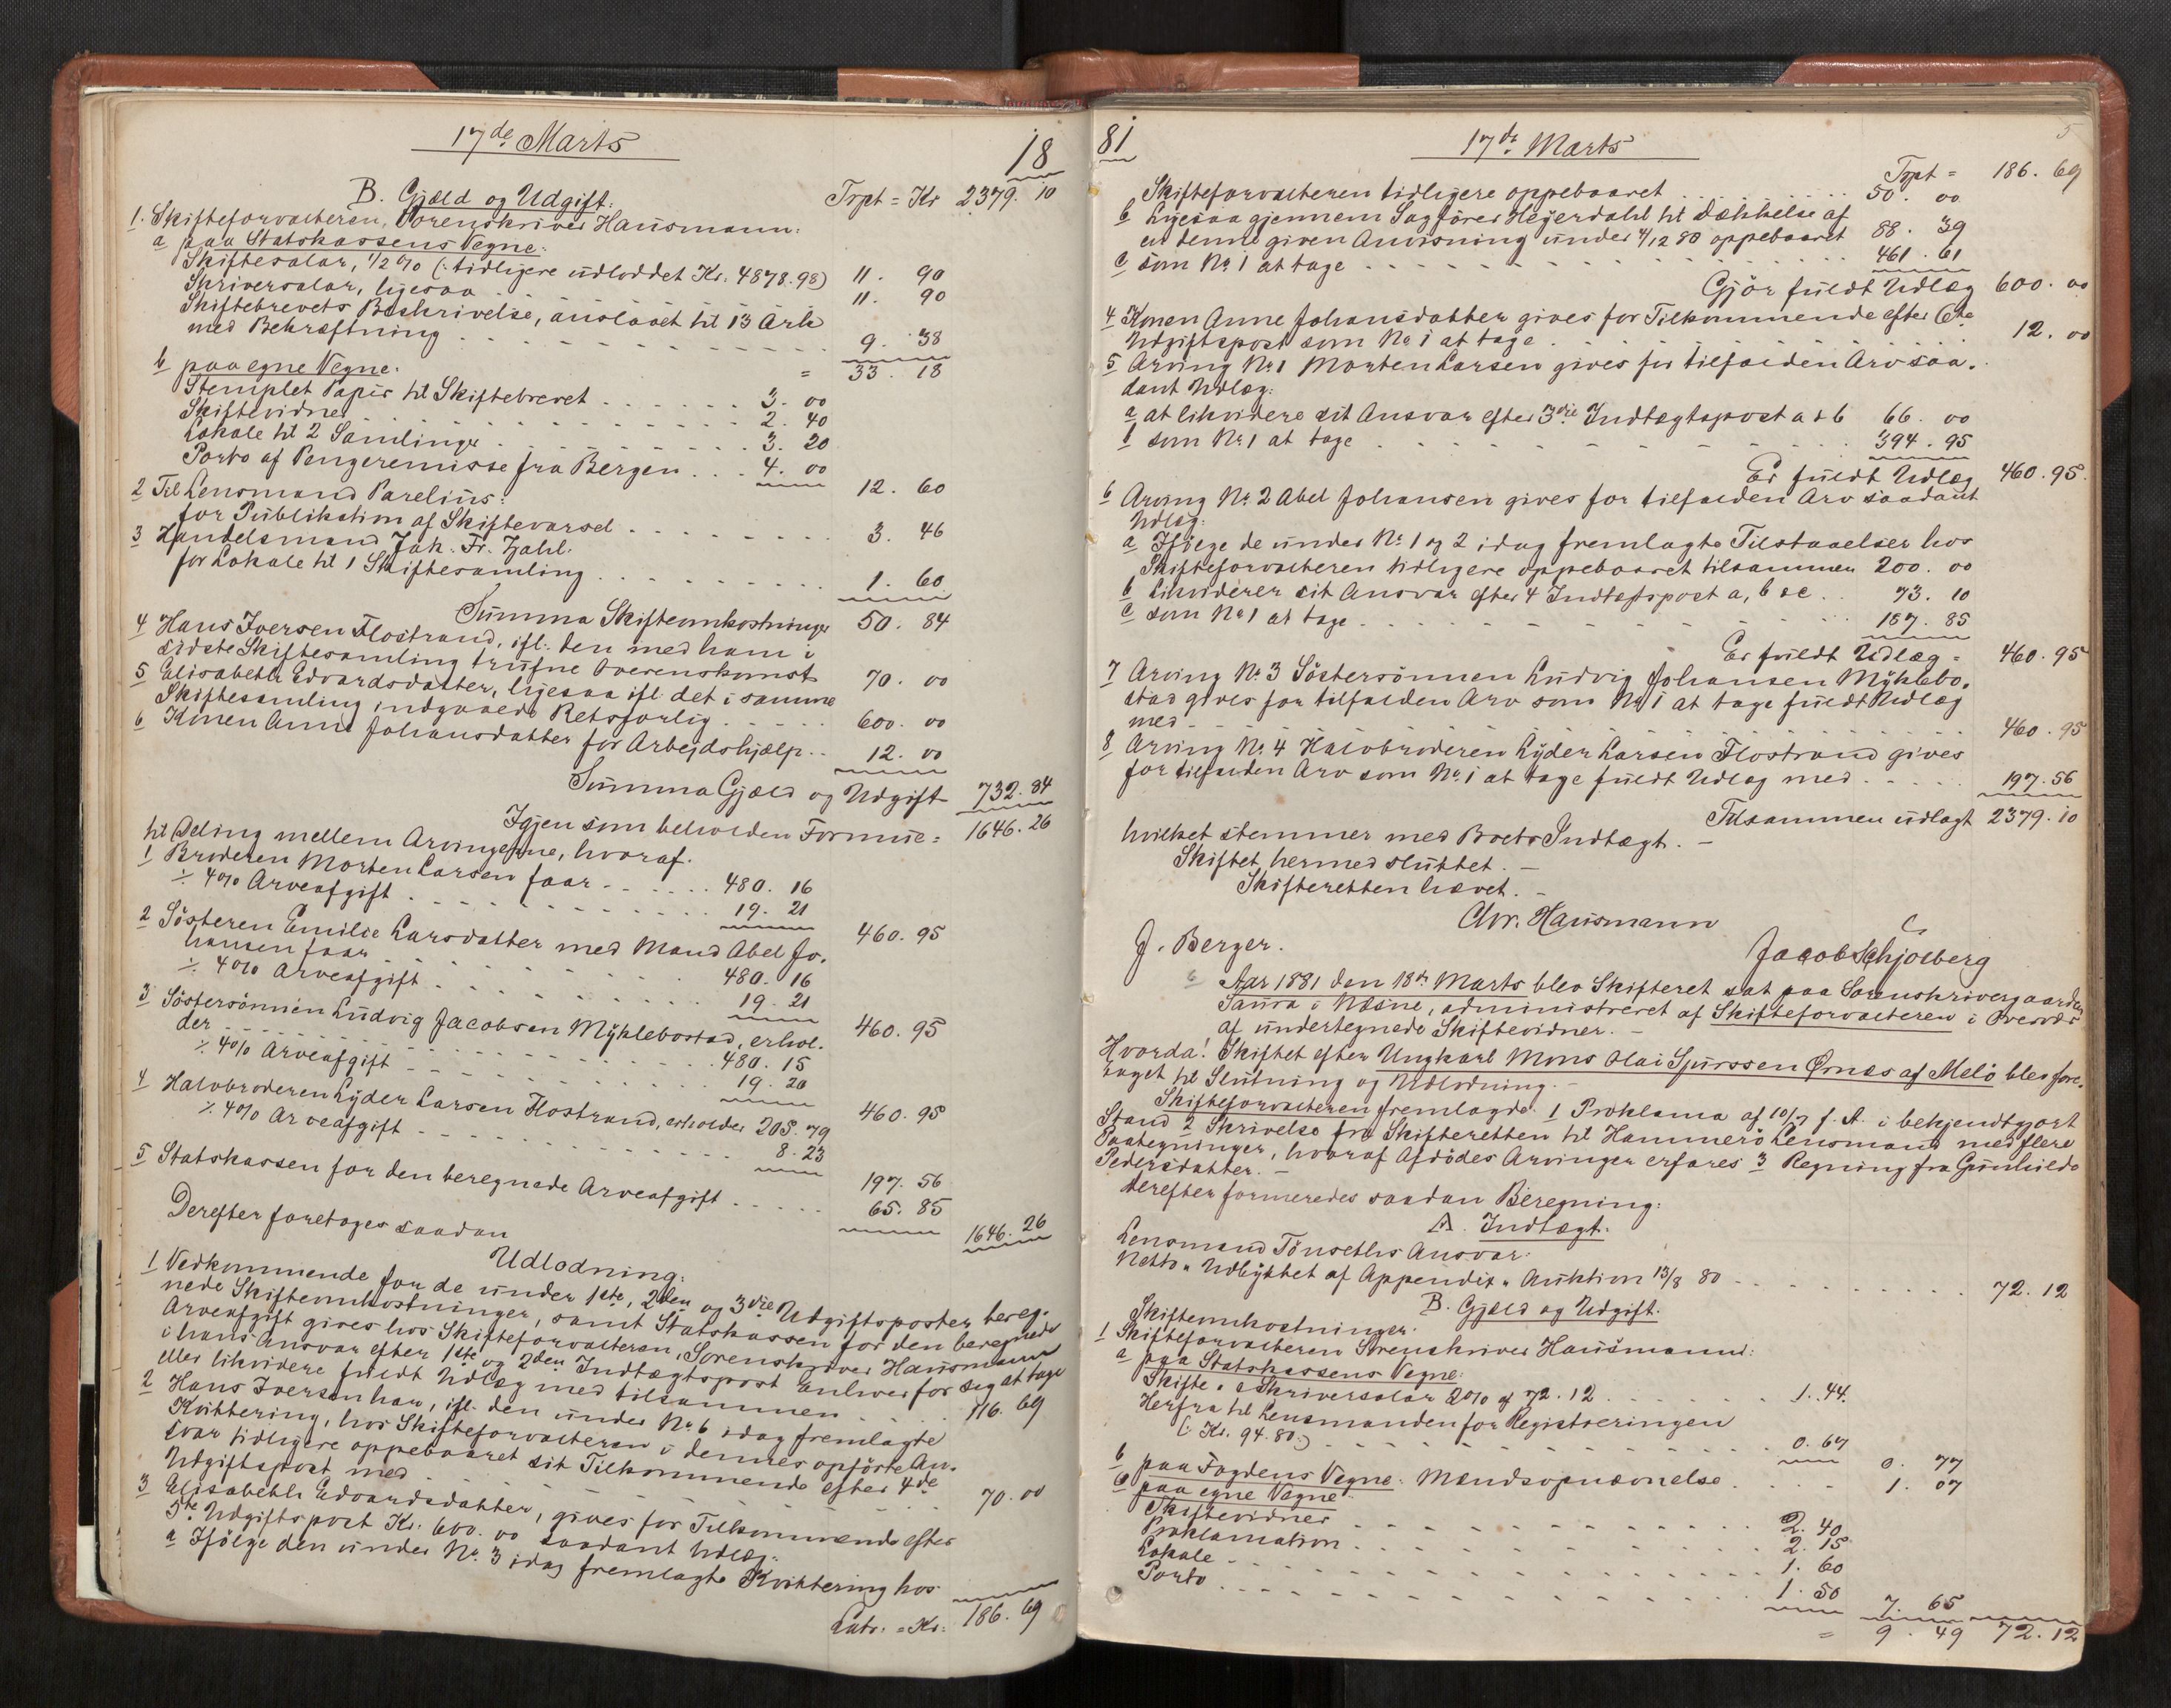 17de Marts
18
Trpt = Kr 2379. 10
B. Gjæld og Udgift:
1. Skifteforvalteren, Sorenskriver Hausmann:
a paa Statskassens Vegne:
Skiftesalær, 1/2 % (: tidligere udloddet Kr. 4878.98) 11. 90
Skriversalær, ligesaa 11. 90
Skiftebrevets Beskrivelse, anslaaet til 13 Ark
med Bekræftning 9. 38
= 33. 18
b paa egne Vegne:
Stemplet Papir til Skiftebrevet 3. 00
Skiftevidner 2. 40
Lokale til 2 Samlinger 3. 20
Porto af Pengeremisse fra Bergen 4. 00
12. 60
2 Til Lensmand Parelius:
for Publikation af Skiftevarsel 3. 46
3 Handelsmand Jak. Fr. Zahl.
for Lokale til 1 Skiftesamling 1. 60
Summa Skifteomkostninger 50. 84
4 Hans Iversen Flostrand, ifl. den med ham i
sidste Skiftesamling trufne Overenskomst 70. 00
5 Elisabeth Edvardsdatter, ligesaa ifl. det i samme
Skiftesamling indgaaede Retsforlig 600. 00
6 Konen Anne Johansdatter for Arbejdshjælp 12. 00
Summa Gjæld og Udgift 732. 84
Igjen som beholden Formue = 1646. 26
til Deling mellem Arvingerne, hvoraf.
1 Broderen Morten Larsen faar 480. 16
÷ 4% Arveafgift 19. 21
460. 95
2 Søsteren Emilie Larsdatter med Mand Abel Jo-
hansen faar 480. 16
÷ 4% Arveafgift 19. 21
460. 95
3 Søstersønnen Ludvig Jacobsen Myklebostad, erhol-
der 480. 15
÷ 4% Arveafgift 19. 20
460. 95
4 Halvbroderen Lyder Larsen Flostrand, erholder 205. 79
÷ 4% Arveafgift 8. 23
197. 56
5 Statskassen for den beregnede Arveafgift 65. 85
1646. 26
Derefter foretages saadan
Udlodning:
1 Vedkommende for de under 1ste, 2den og 3die Udgiftsposter bereg-
nede Skifteomkostninger, samt Statskassen for den beregnede
Arveafgift gives hos Skifteforvalteren, Sorenskriver Hausmann
i hans Ansvar efter 1ste og 2den Indtægtspost Enhver for sig at tage
eller likvidere fuldt Udlæg med tilsammen 116. 69
2 Hans Iversen har, ifl. den under No. 6 idag fremlagte
Kvittering, hos Skifteforvalteren i dennes opførte An-
svar tidligere oppebaaret sit Tilkommende efter 4de
Udgiftspost med 70. 00
3 Elisabeth Edvardsdatter, gives for Tilkommende efter
5te Udgiftspost Kr. 600. 00 saadant Udlæg:
a Ifølge den under No. 3 idag fremlagte Kvittering hos
Latr. = Kr. 186. 69
81
17de Marts
5
Trpt = 186. 69
Skifteforvalteren tidligere oppebaaret 50. 00
b Ligesaa gjennem Sagfører Heyerdahl til Dækkelse af
en denne given Anvisning under 4/12 80 oppebaaret 88. 39
c som No. 1 at tage 461. 61
Gjør fuldt Udlæg 600. 00
4 Konen Anne Johansdatter gives for Tilkommende efter 6te
Udgiftspost som No 1 at tage 12. 00
5 Arving No. 1 Morten Larsen gives for tilfalden Arv saa-
dant Udlæg:
a at likvidere sit Ansvar efter 3die Indtægtspost a & b 66. 00
b som No. 1 at tage 394. 95
Er fuldt Udlæg 460. 95
6 Arving No. 2 Abel Johansen gives for tilfalden Arv saadant
Udlæg:
a Ifølge de under No. 1 og 2 idag fremlagte Tilstaaelser hos
Skifteforvalteren tidligere oppebaaret tilsammen 200. 00
b Likviderer sit Ansvar efter 4 Indtægtspost a, b & c 73. 10
c som No. 1 at tage 187. 85
Er fuldt Udlæg = 460. 95
7 Arving No. 3 Søstersønnen Ludvig Johansen Myklebo-
stad gives for tilfalden Arv som No 1 at tage fuldt Udlæg
med 460. 95
8 Arving No. 4 Halvbroderen Lyder Larsen Flostrand gives
for tilfalden Arv som No. 1 at tage fuldt Udlæg med 197. 56
Tilsammen udlagt 2379. 10
hvilket stemmer med Boets Indtægt. –
Skiftet hermed sluttet. –
Skifteretten hævet. –
Chr. Hausmann
J. Berger.
Jacob Schjelberg
Aar 1881 den 18de Marts blev Skifteret sat paa Sorenskrivergaarden
Saura i Næsne, administreret af Skifteforvalteren i Overvær
af undertegnede Skiftevidner. –
Hvorda! Skiftet efter Ungkarl Mons Olai Sjursen Ørnes af Melø blev fore-
taget til Slutning og Udlodning. –
Skifteforvalteren fremlagde. 1 Proklama af 10/7 f. A. i bekjendtgjort
Stand 2 Skrivelse fra Skifteretten til Hammerø Lensmand med flere
Paategninger, hvoraf Afdødes Arvinger erfares 3 Regning fra Gunhilde
Pedersdatter. –
Derefter formeredes saadan Beregning:
A. Indtægt:
Lensmand Tønseths Ansvar:
Netto-Udbyttet af Appendix-Auktion 13/8 80 72. 12
B. Gjæld og Udgift.
Skifteomkostninger.
1 Skifteforvalteren Sorenskriver Hausmann:
a paa Statskassens Vegne:
Skifte- & Skriversalær 2% af 72. 12 1. 44.
Herfra til Lensmanden for Registreringen
(: Kr. 94. 80:) 0. 67
0. 77
b paa Fogdens Vegne: Mandsopnævnelse 1. 07
c paa egne Vegne
Skiftevidner 2. 40
Proklamation 2. 15
Lokale 1. 60
Porto 1. 50
7. 65
= 9. 49 72. 12